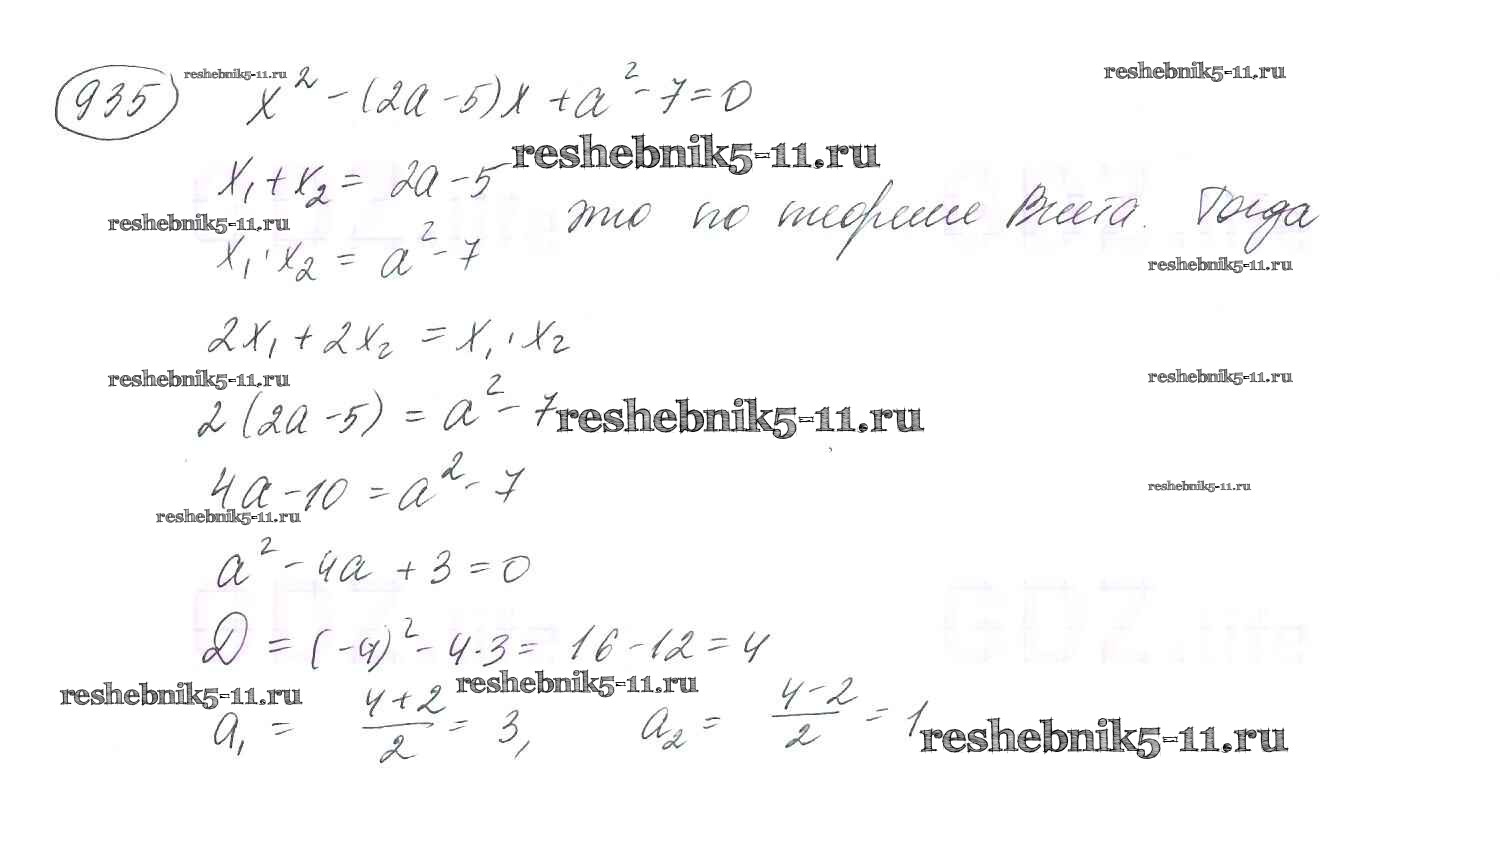 reshebnik5-11.ru
reshebnik5-11.ru
935 x² - (2a - 5)x + a² - 7 = 0
reshebnik5-11.ru
x₁ + x₂ = 2a - 5
это по теореме Виета. Тогда
reshebnik5-11.ru
x₁ · x₂ = a² - 7
reshebnik5-11.ru
2x₁ + 2x₂ = x₁ · x₂
reshebnik5-11.ru
reshebnik5-11.ru
2(2a - 5) = a² - 7
reshebnik5-11.ru
4a - 10 = a² - 7
reshebnik5-11.ru
reshebnik5-11.ru
a² - 4a + 3 = 0
D = (-4)² - 4·3 = 16 - 12 = 4
reshebnik5-11.ru
reshebnik5-11.ru
a₁ = (4+2)/2 = 3, a₂ = (4-2)/2 = 1
reshebnik5-11.ru